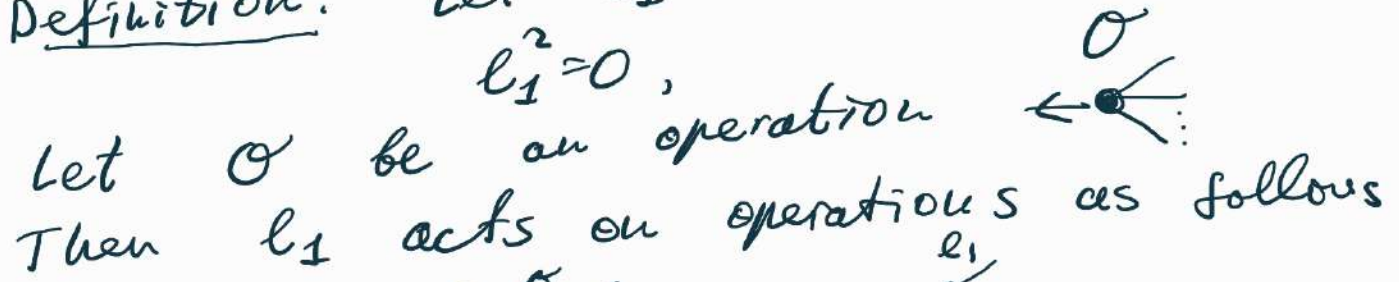 Definition.
l₁²=0, O
Let O be an operation
Then l₁ acts on operations as follows
l₁